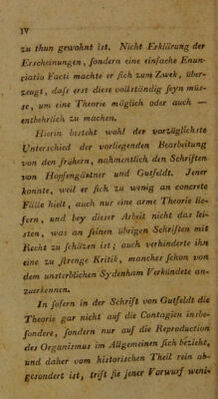 IV
zu thun gewohnt ist. Nicht Erklärung der
Erscheinungen, sondern eine einfache Enun-
ciatio Facti machte er sich zum Zwek, über-
zeugt, daſs erst diese vollständig seyn müs-
se, um eine Theorie möglich oder auch —
entbehrlich zu machen.
Hierin besteht wohl der vorzüglichste
Unterschied der vorliegenden Bearbeitung
von den frühern, nahmentlich den Schriften
von Hopfengärtner und Gutfeldt. Jener
konnte, weil er sich zu wenig an concrete
Fälle hielt, auch nur eine arme Theorie lie-
fern, und bey dieser Arbeit nicht das lei-
sten, was an seinen übrigen Schriften mit
Recht zu schäzen ist; auch verhinderte ihn
eine zu strenge Kritik, manches schon von
dem unsterblichen Sydenham Verkündete an-
zuerkennen.
In sofern in der Schrift von Gutfeldt die
Theorie gar nicht auf die Contagien insbe-
sondere, sondern nur auf die Reproduction
des Organismus im Allgemeinen sich bezieht,
und daher vom historischen Theil rein ab-
gesondert ist, trift sie jener Vorwurf weni-